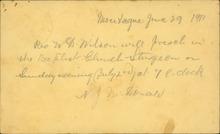 June 29 1911
Rev W D Wilson will preach in
the Baptist Church Sturgeon on
Sunday evening July 2nd at 7 o.clock